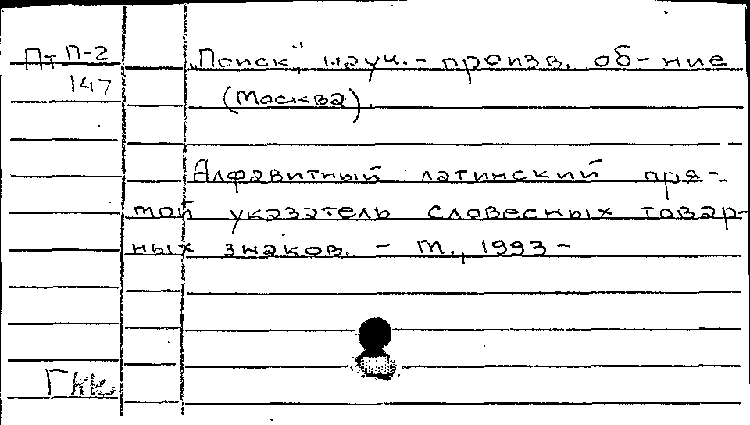 Пт П-2
147
"Поиск", науч.-произв. об-ние
(Москва).
Алфавитный латинский пря-
мой указатель словесных товар-
ных знаков. - М., 1993 -
ГКК